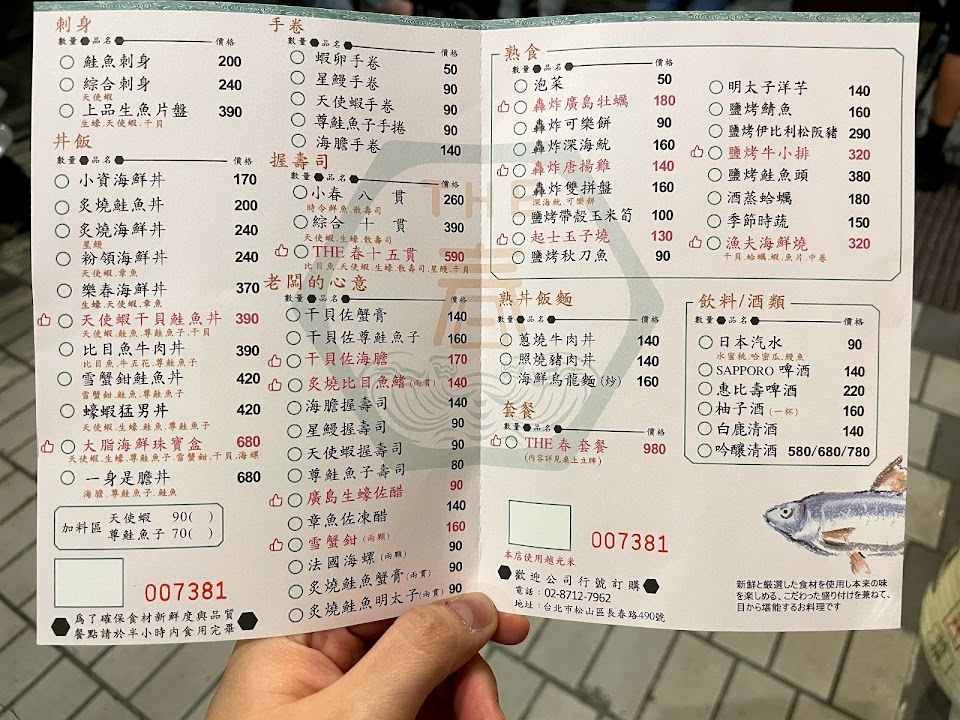 刺身
數量 品名 價格
鮭魚刺身 200
綜合刺身 240
天使蝦
上品生魚片盤 390
生蠔.天使蝦.干貝
丼飯
數量 品名 價格
小資海鮮丼 170
炙燒鮭魚丼 200
炙燒海鮮丼 240
星鰻
粉領海鮮丼 240
天使蝦.章魚
樂春海鮮丼 370
生蠔.天使蝦.章魚
天使蝦干貝鮭魚丼 390
天使蝦.鮭魚.尊鮭魚子.干貝
比目魚牛肉丼 390
比目魚.牛五花.尊鮭魚子
雪蟹鉗鮭魚丼 420
雪蟹鉗.鮭魚.尊鮭魚子
蠔蝦猛男丼 420
生蠔.天使蝦.鮭魚.尊鮭魚子
大脂海鮮珠寶盒 680
天使蝦.生蠔.尊鮭魚子.雪蟹鉗.干貝.海螺
一身是膽丼 680
海膽.尊鮭魚子.鮭魚
加料區
天使蝦 90( )
尊鮭魚子 70( )
007381
為了確保食材新鮮度與品質
餐點請於半小時內食用完畢
手卷
數量 品名 價格
蝦卵手卷 50
星鰻手卷 90
天使蝦手卷 90
尊鮭魚子手捲 90
海膽手卷 140
握壽司
數量 品名 價格
小春 八 貫 260
時令鮮魚.散壽司
綜合 十 貫 390
天使蝦.生蠔.散壽司
THE 春十五貫 590
比目魚.天使蝦.生蠔.散壽司.星鰻.干貝
老闆的心意
數量 品名 價格
干貝佐蟹膏 140
干貝佐尊鮭魚子 140
干貝佐海膽 170
炙燒比目魚鰭(兩貫) 140
海膽握壽司 140
星鰻握壽司 90
天使蝦握壽司 90
尊鮭魚子壽司 80
廣島生蠔佐醋 90
章魚佐凍醋 140
雪蟹鉗(兩顆) 160
法國海螺(兩顆) 90
炙燒鮭魚蟹膏(兩貫) 90
炙燒鮭魚明太子(兩貫) 90
熟食
數量 品名 價格
泡菜 50
轟炸廣島牡蠣 180
轟炸可樂餅 90
轟炸深海魷 160
轟炸唐揚雞 140
轟炸雙拼盤 160
深海魷.可樂餅
鹽烤帶殼玉米筍 100
起士玉子燒 130
鹽烤秋刀魚 90
明太子洋芋 140
鹽烤鯖魚 160
鹽烤伊比利松阪豬 290
鹽烤牛小排 320
鹽烤鮭魚頭 380
酒蒸蛤蠣 180
季節時蔬 150
漁夫海鮮燒 320
干貝.蛤蠣.蝦.魚片.中卷
熟丼飯麵
數量 品名 價格
蔥燒牛肉丼 140
照燒豬肉丼 140
海鮮烏龍麵(炒) 160
套餐
數量 品名 價格
THE 春 套餐 980
(內容詳見桌上立牌)
飲料/酒類
數量 品名 價格
日本汽水 90
水蜜桃.哈密瓜.鰻魚
SAPPORO 啤酒 140
惠比壽啤酒 220
柚子酒(一杯) 160
白鹿清酒 140
吟釀清酒 580/680/780
007381
本店使用越光米
歡迎公司行號訂購
電話:02-8712-7962
地址:台北市松山區長春路490號
新鮮と厳選した食材を使用し本来の味
を楽しめる、こだわった盛り付けを兼ねて、
目から堪能するお料理です
THE
春